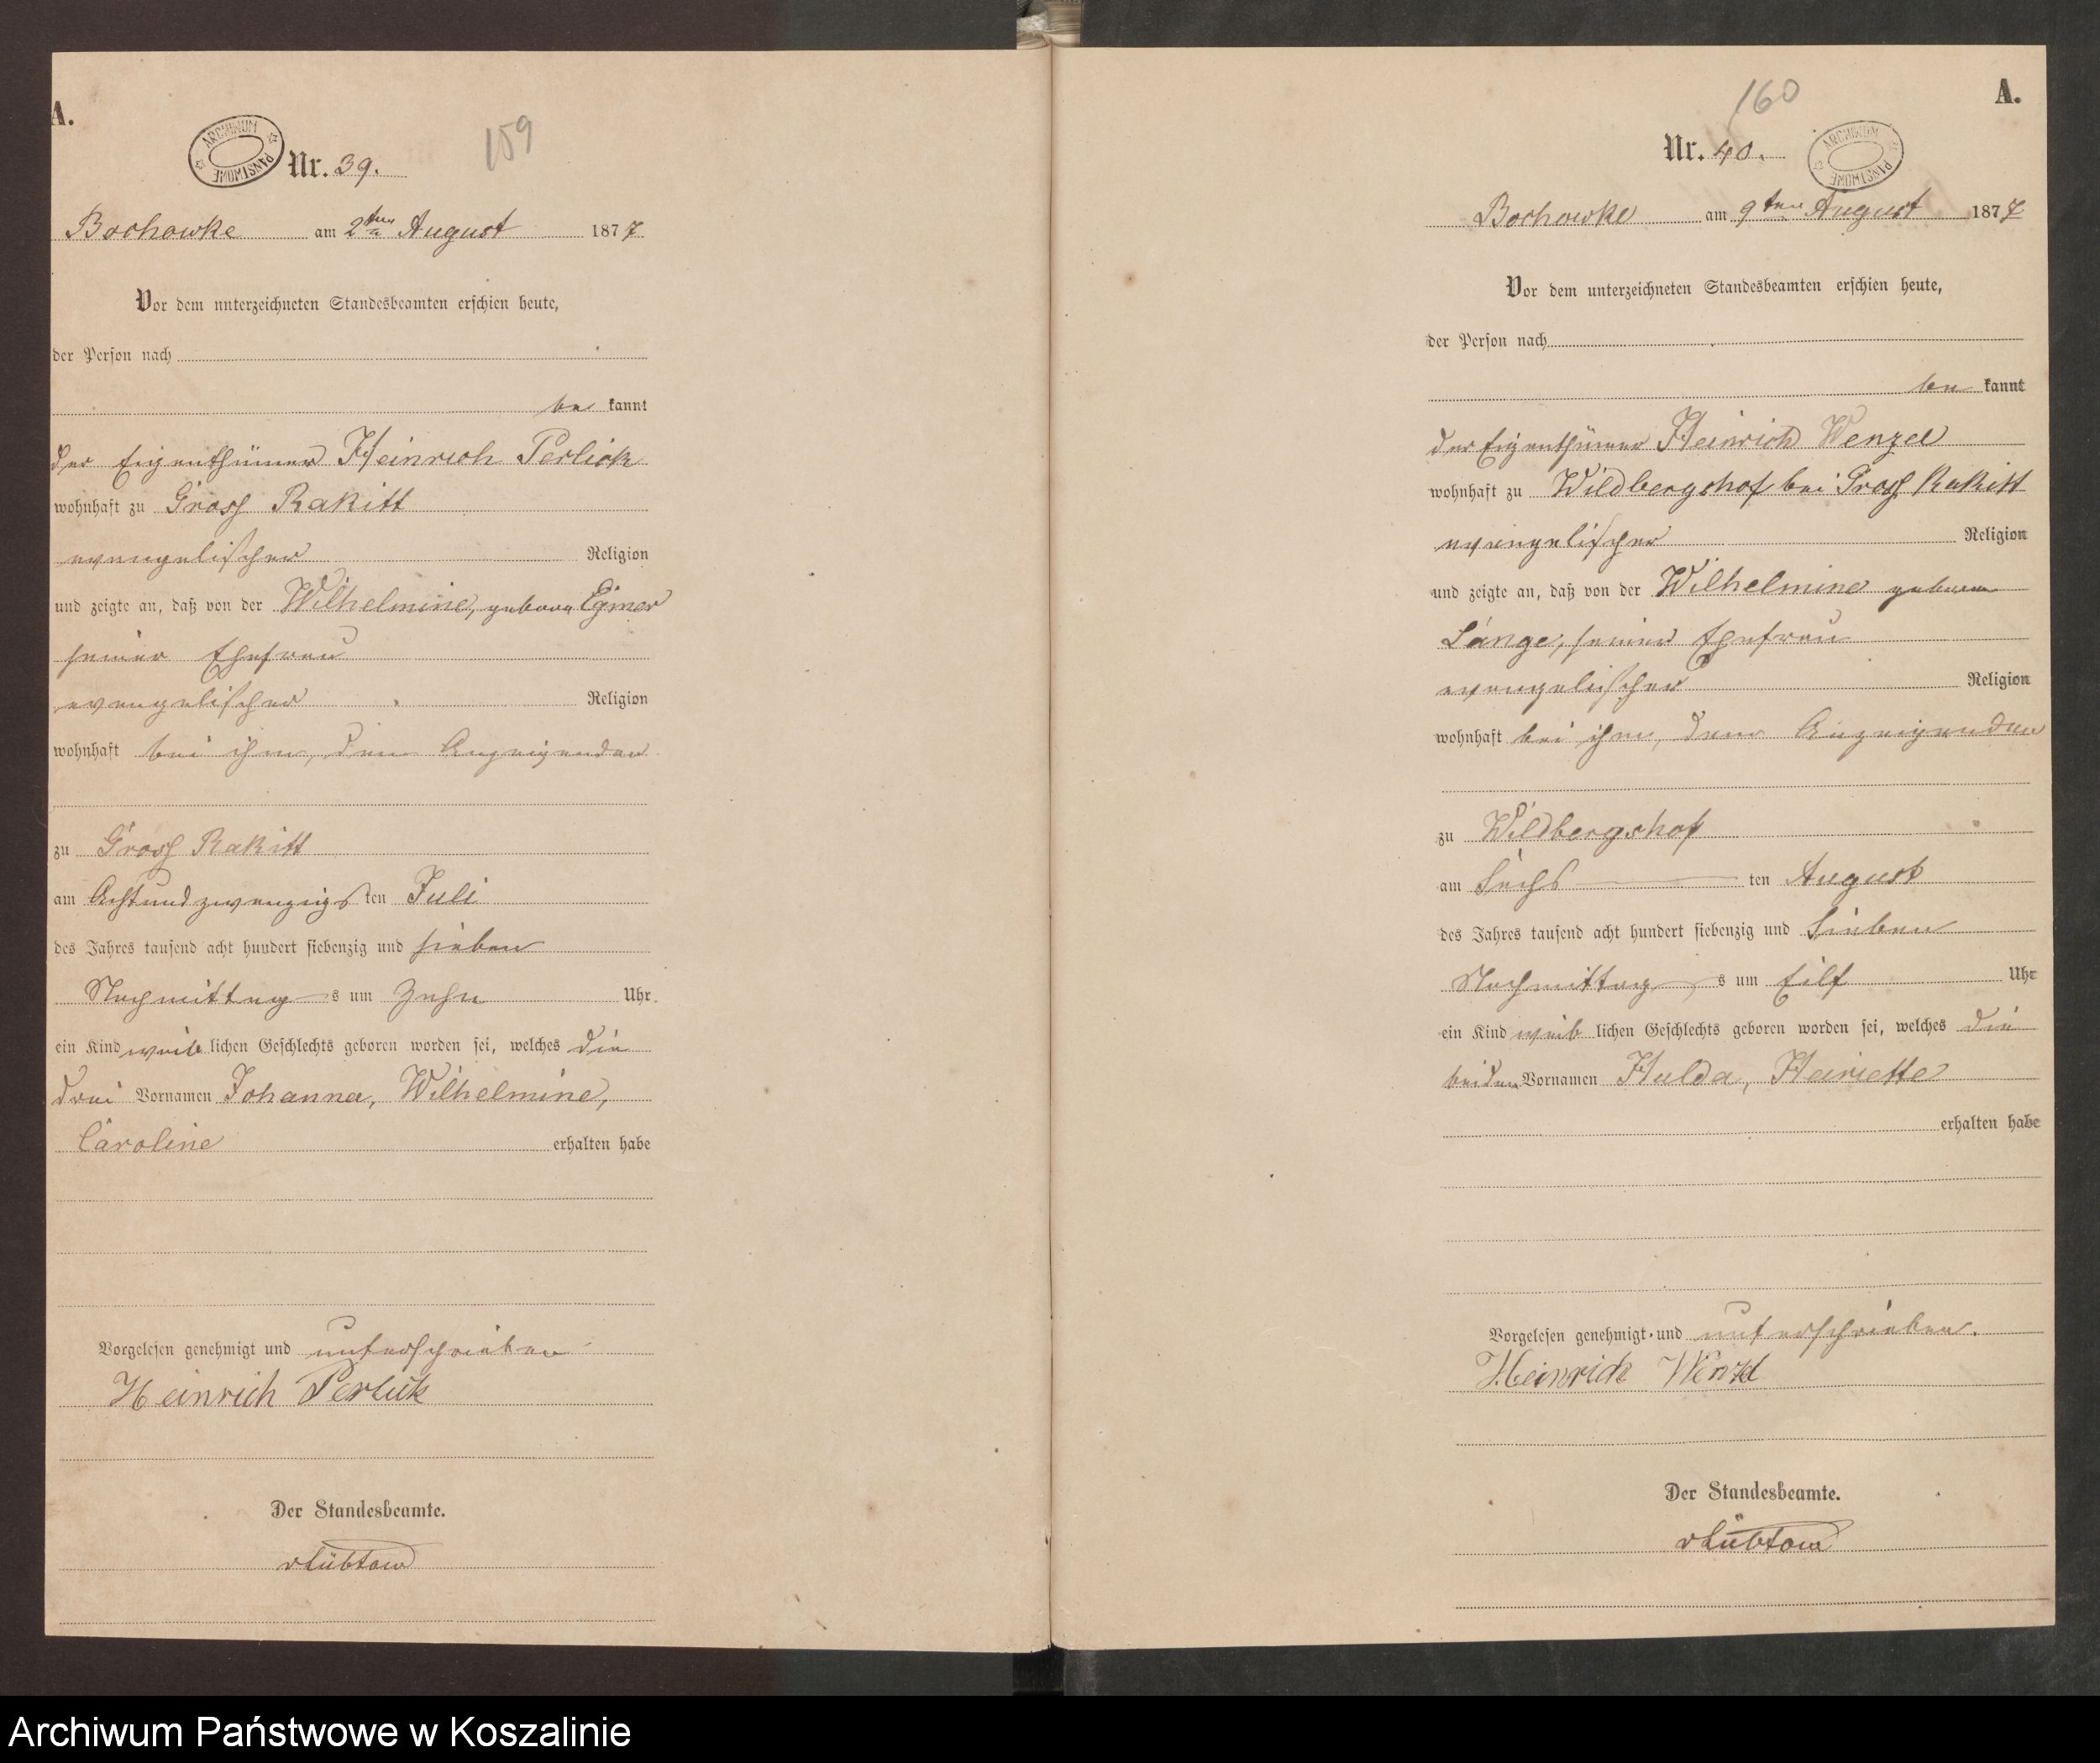 A.
ARCHIWUM PAŃSTWOWE
Nr. 39.
159
Bochowke am 2ten August 1877
Vor dem unterzeichneten Standesbeamten erschien heute,
der Person nach
be kannt
der Eigenthümer Heinrich Perlick
wohnhaft zu Gross Rakitt
evangelischer Religion
und zeigte an, daß von der Wilhelmine, geboren Egmer
seiner Ehefrau
evangelischer Religion
wohnhaft bei ihm, dem Anzeigenden
zu Gross Rakitt
am Achtundzwanzigs ten Juli
des Jahres tausend acht hundert siebenzig und sieben
Nachmittag s um Zehn Uhr
ein Kind weib lichen Geschlechts geboren worden sei, welches die
drei Vornamen Johanna, Wilhelmine,
Caroline erhalten habe
Vorgelesen genehmigt und unterschrieben
Heinrich Perlick
Der Standesbeamte.
vLübtow
160
A.
Nr. 40.
ARCHIWUM PAŃSTWOWE
Bochowke am 9ten August 1877
Vor dem unterzeichneten Standesbeamten erschien heute,
der Person nach
be kannt
der Eigenthümer Heinrich Wenzel
wohnhaft zu Wildbergshof bei Gross Rakitt
evangelischer Religion
und zeigte an, daß von der Wilhelmine geboren
Lange, seiner Ehefrau
evangelischer Religion
wohnhaft bei ihm, dem Anzeigenden
zu Wildbergshof
am Sechs ten August
des Jahres tausend acht hundert siebenzig und Sieben
Nachmittag s um Eilf Uhr
ein Kind weib lichen Geschlechts geboren worden sei, welches die
beiden Vornamen Hulda, Heiriette
erhalten habe
Vorgelesen genehmigt und unterschrieben.
Heinrich Wenzel
Der Standesbeamte.
vLübtow
Archiwum Państwowe w Koszalinie